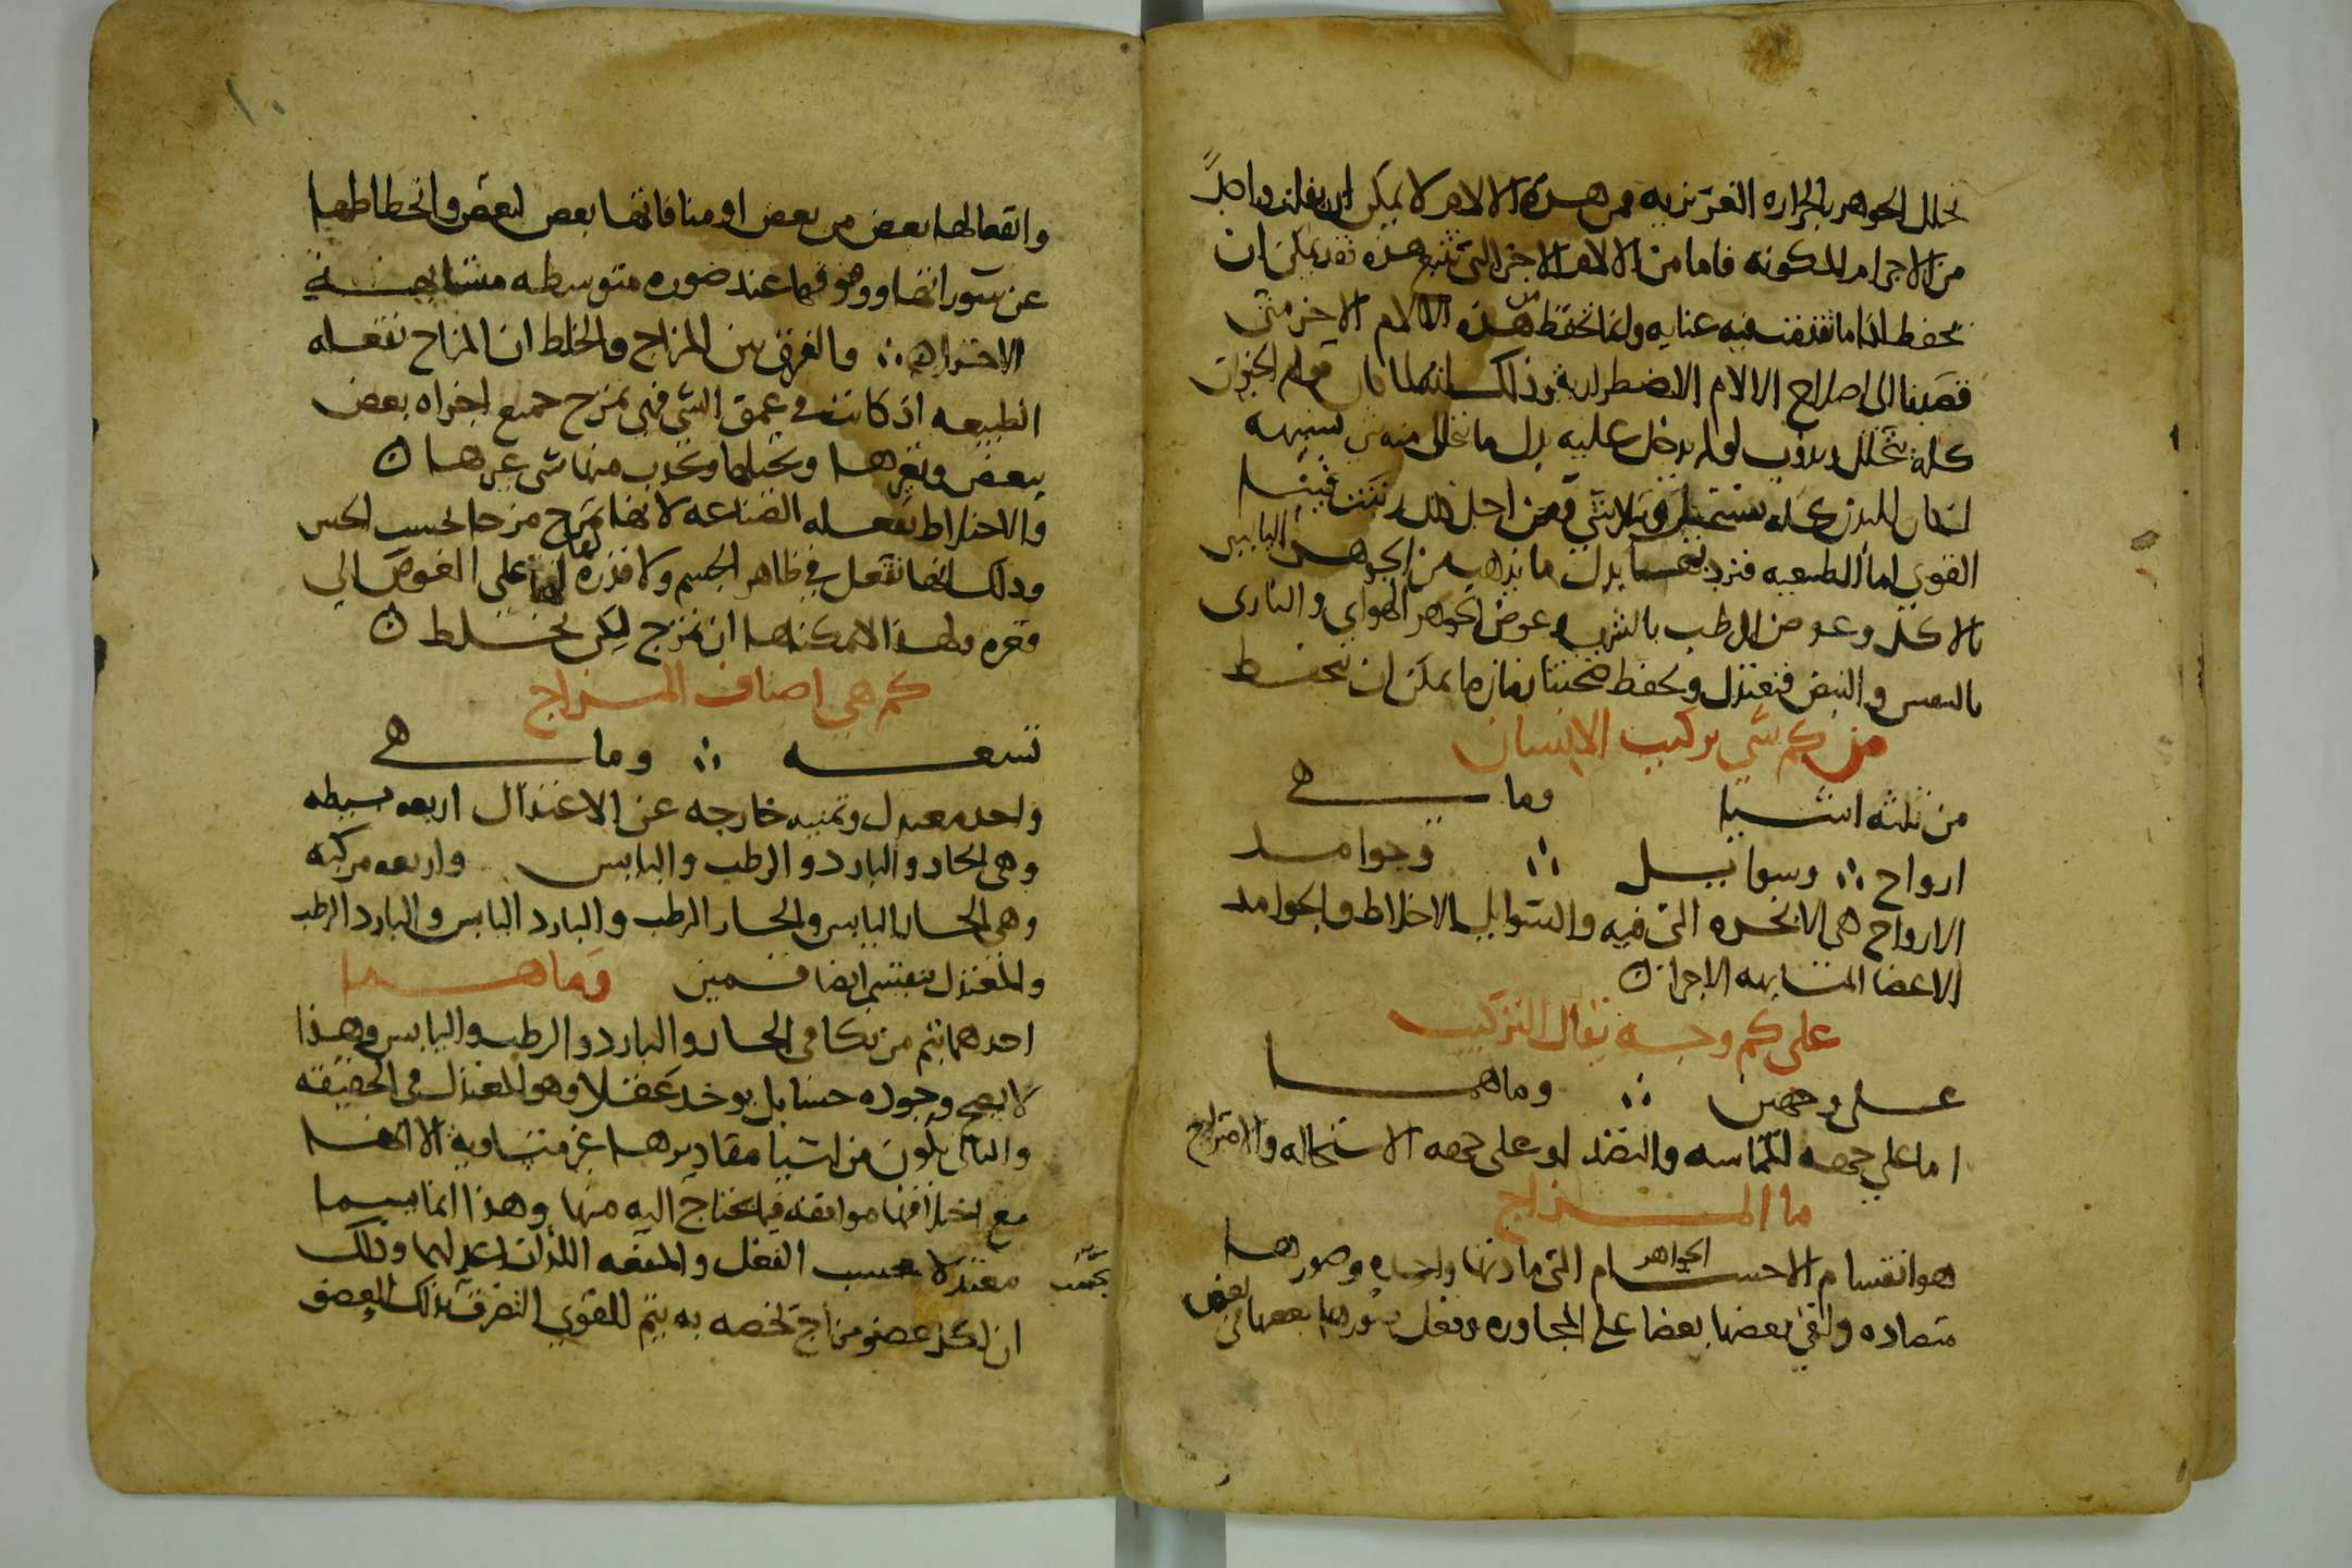 تحلل الجوهر بالحراره الغريزيه ومن هذه الالام لا يمكن ان يفلت واحداً
من الاجرام المكونه فاما من الالام الاخر التى تتبع هذه فقد يمكن ان
تحفظ اذا ما تقدمت فيه عنايه وانما تحفظ من هذه الالام الاخر متى
قصدنا الى اصلاح الالام الاضطراريه وذلك انه لما كان قوام الحيوان
كله يتحلل ويذوب لو لم يدخل عليه بدل ما تحلل منه من شبيهه
لكان البدن كله يستحيل ويتلاشى فمن اجل هذا ركبت فينا
القوى اما الطبيعيه فترد بدل ما يذهب من الجوهر اليابس
بالاكل وعوض الرطب بالشرب وعوض الجوهر الهواى والنارى
بالنفس والنبض فتعتدل وتحفظ صحتنا زمان ما يمكن ان تحفظ
من كم شى تركيب الانسان
من ثلثه اشيا وما هى
ارواح ∴ وسوايل ∴ وجوامد
الارواح هى الابخره التى فيه والسوايل الاخلاط والجوامد
الاعضا المتشابهه الاجزا
على كم وجه يقال التركيب
على وجهين ∴ وما هما
اما على جهه المماسه والنضد او على جهه الاستحاله والامتزاج
ما المزاج
هو انقسام الاجسام الجواهر التى مادتها واحده وصورها
متضاده والقى بعضها بعضا على المجاوره وفعل سورها بعضها فى بعض
١٠
وانفعالها بعض من بعض او منافاتها بعض لبعض وانحطاطها
عن سوراتها ووقوفها عند صوره متوسطه متشابهة
الاجزاء ∴ والفرق بين المزاج والخلط ان المزاج تفعله
الطبيعه اذ كانت فى عمق الشى فهى تمزج جميع اجزاه بعض
ببعض وتغيرها وتحيلها ويحدث منها شى غيرها
والاختلاط تفعله الصناعه لانها تمزج مزجا بحسب الحس
وذلك انها تفعل فى ظاهر الجسم ولا قدره لها على الغوص الى
قعره ولهذا لا يمكنها ان تمزج لكن تخلط
كم هى اصناف المزاج
تسعه ∴ وما هى
واحد معتدل وثمنيه خارجه عن الاعتدال اربعه بسيطه
وهى الحار والبارد والرطب واليابس واربعه مركبه
وهى الحار اليابس والحار الرطب والبارد اليابس والبارد الرطب
والمعتدل ينقسم ايضا قسمين وما هما
احدهما يتم من تكافى الحار والبارد والرطب واليابس وهذا
لا يصح وجوده حسا بل يوخذ عقلا وهو المعتدل فى الحقيقه
والثانى يكون من اشيا مقاديرها غير متساويه الا انها
مع اختلافها موافقه فيما يحتاج اليه منها وهذا انما يسما
معتدلا بحسب الفعل والمنفعه اللذان اعد لهما وذلك
بحسب
ان لكل عضو مزاج تخصه به يتم للقوى التصرف بذلك العضو